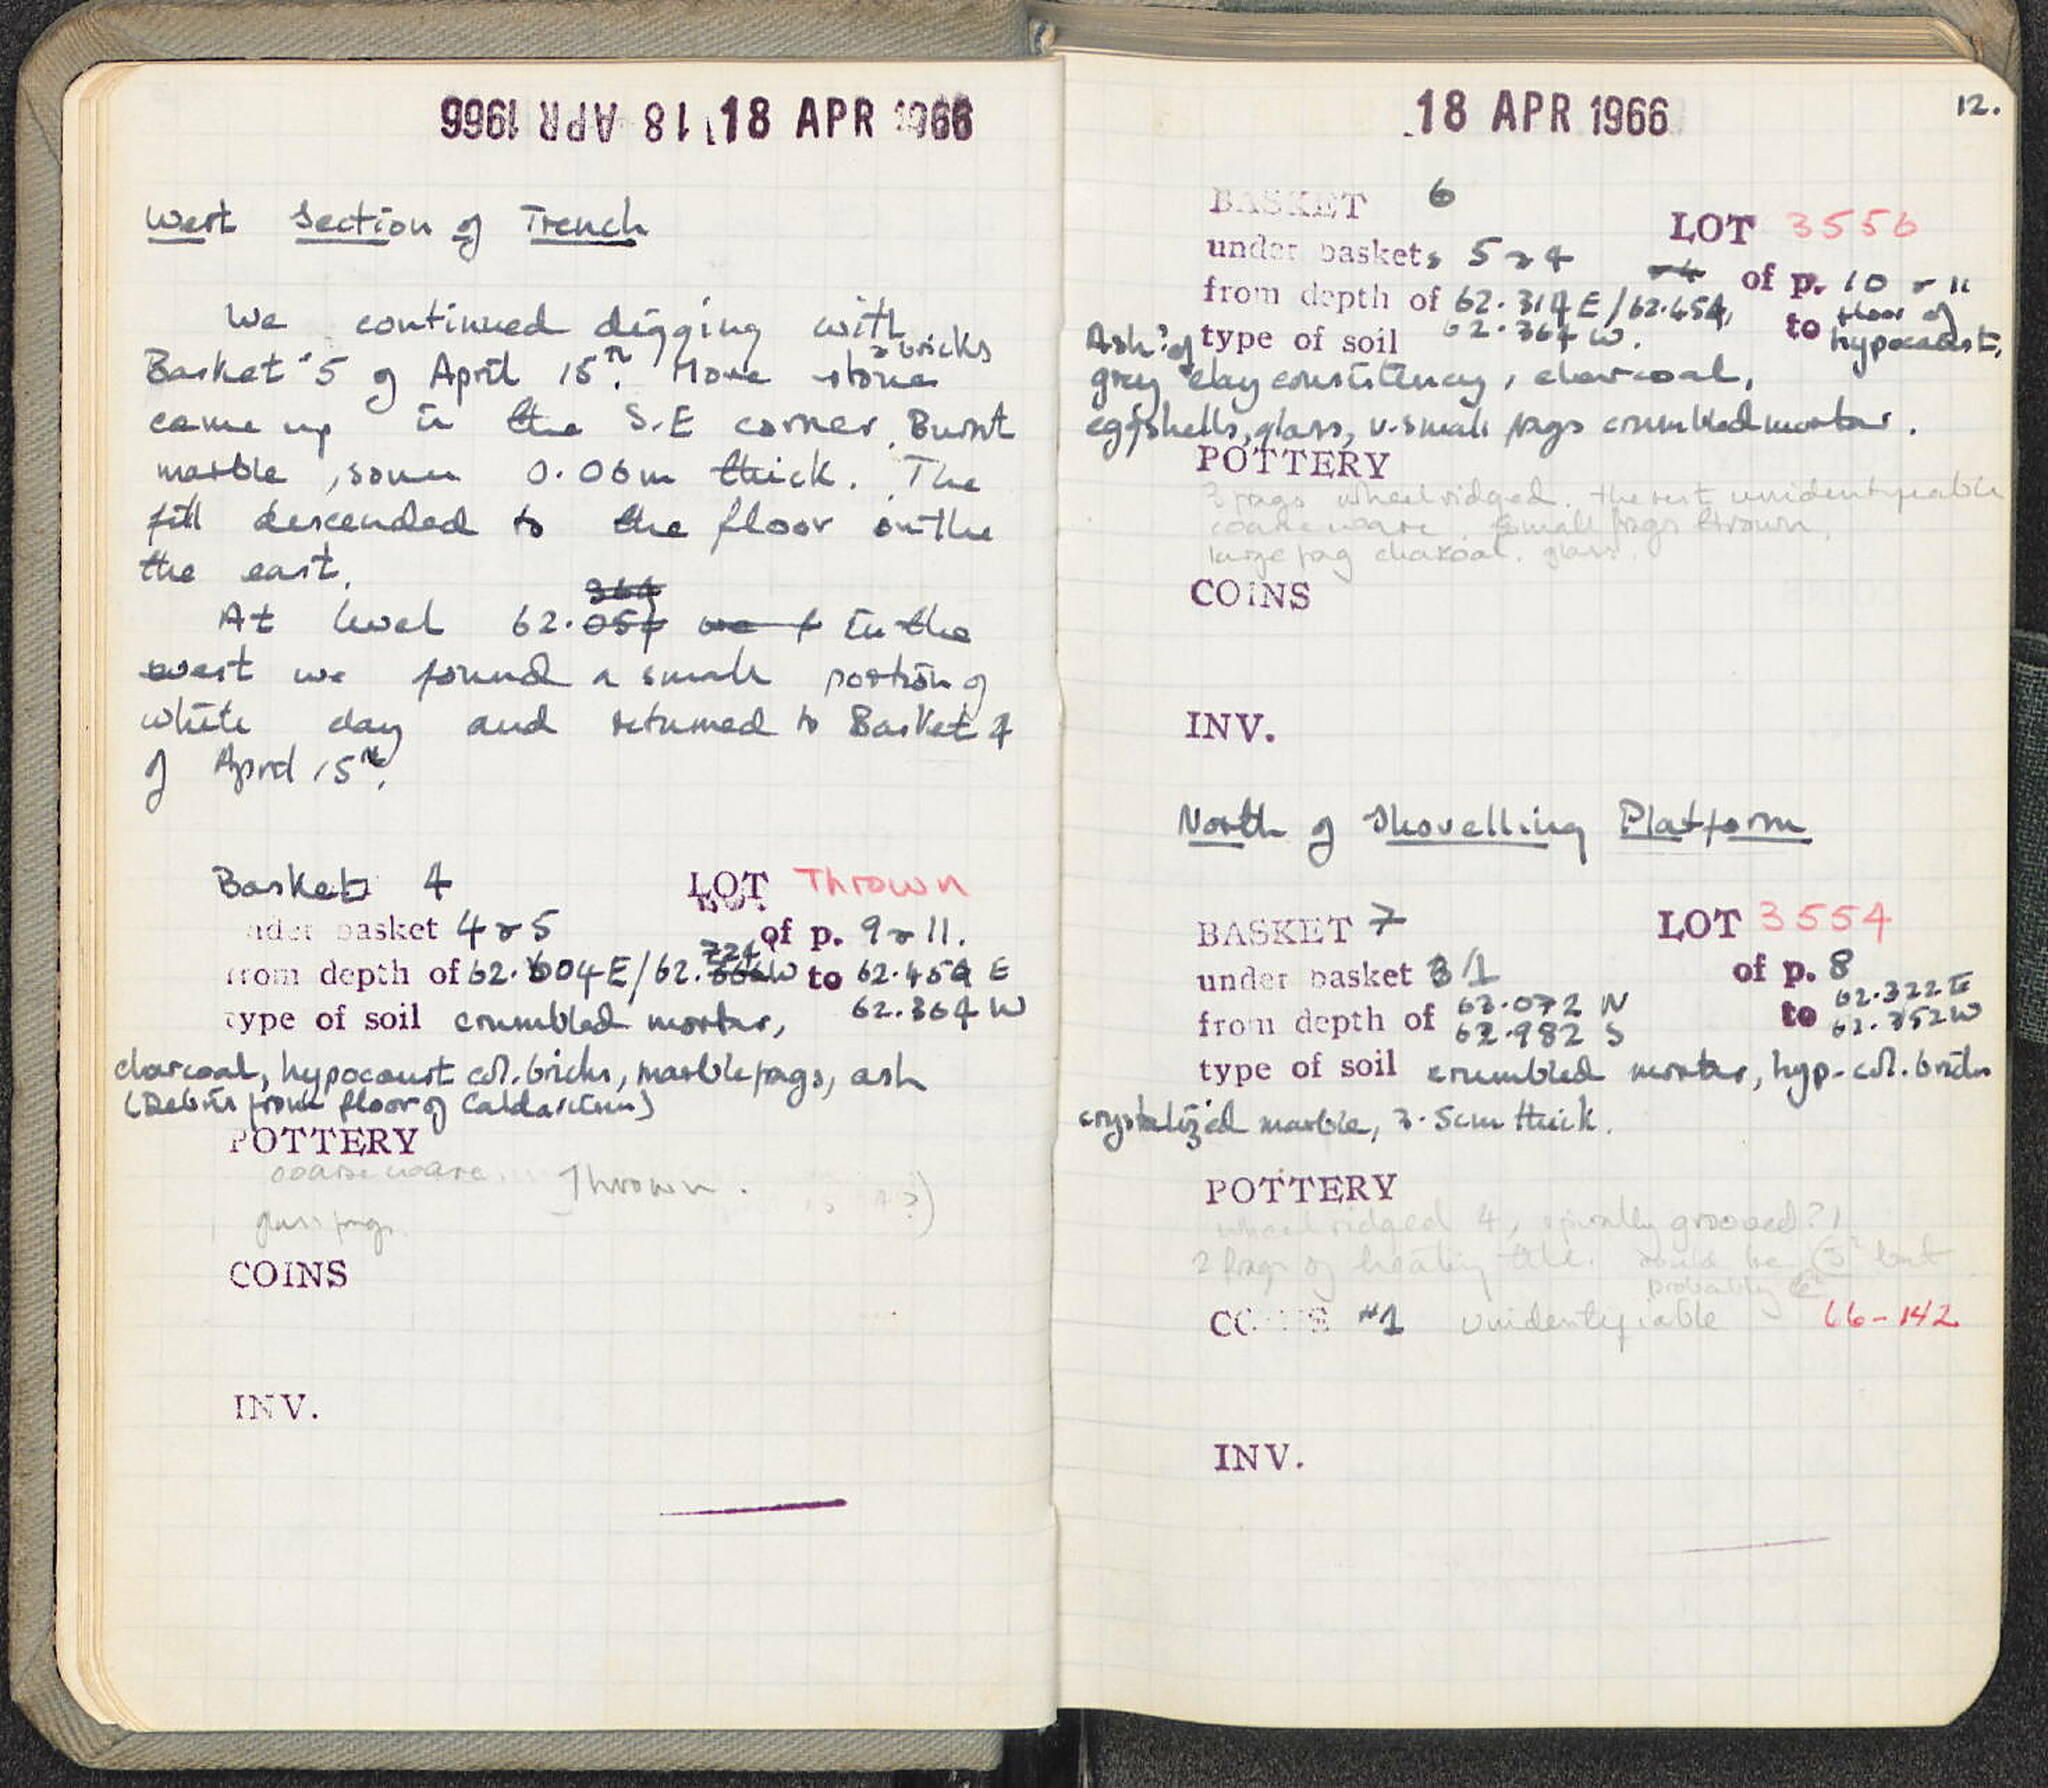 18 APR 1966 18 APR 1966
West Section of Trench
We continued digging with
Basket 5 of April 15th. More stones & bricks
came up in the S.E corner. Burnt
marble, some 0.06m thick. The
fill descended to the floor on the
the east.
At level 62. in the
west we found a small portion of
white clay and returned to Basket 4
of April 15th.
Basket 4 LOT Thrown
under basket 4 & 5 of p. 9 & 11.
from depth of 62.604 E/62.724 W to 62.454 E
62.364 W
type of soil crumbled mortar,
charcoal, hypocaust col. bricks, marble frags, ash
(Debris from floor of Caldarium)
POTTERY
coarse ware. Thrown.
glass frags.
COINS
INV.
18 APR 1966
12.
BASKET 6
LOT 3556
under baskets 5 & 4 of p. 10 & 11
from depth of 62.314 E/62.454, 62.364 W. to floor of hypocaust.
type of soil Ash? of
grey clay consistency, charcoal,
eggshells, glass, v. small frags crumbled mortar.
POTTERY
3 frags wheelridged. the rest unidentifiable
coarse ware. small frags thrown.
large frag charcoal. glass.
COINS
INV.
North of Shovelling Platform
BASKET 7 LOT 3554
under basket 3/1 of p. 8
from depth of 63.072 N to 62.322 E
62.982 S 62.352 W
type of soil crumbled mortar, hyp. col. bricks
crystalized marble, 3.5cm thick.
POTTERY
wheelridged 4, spirally grooved? 1
2 frags of heating tile. could be but
probably
COINS #1 unidentifiable 66-142
INV.